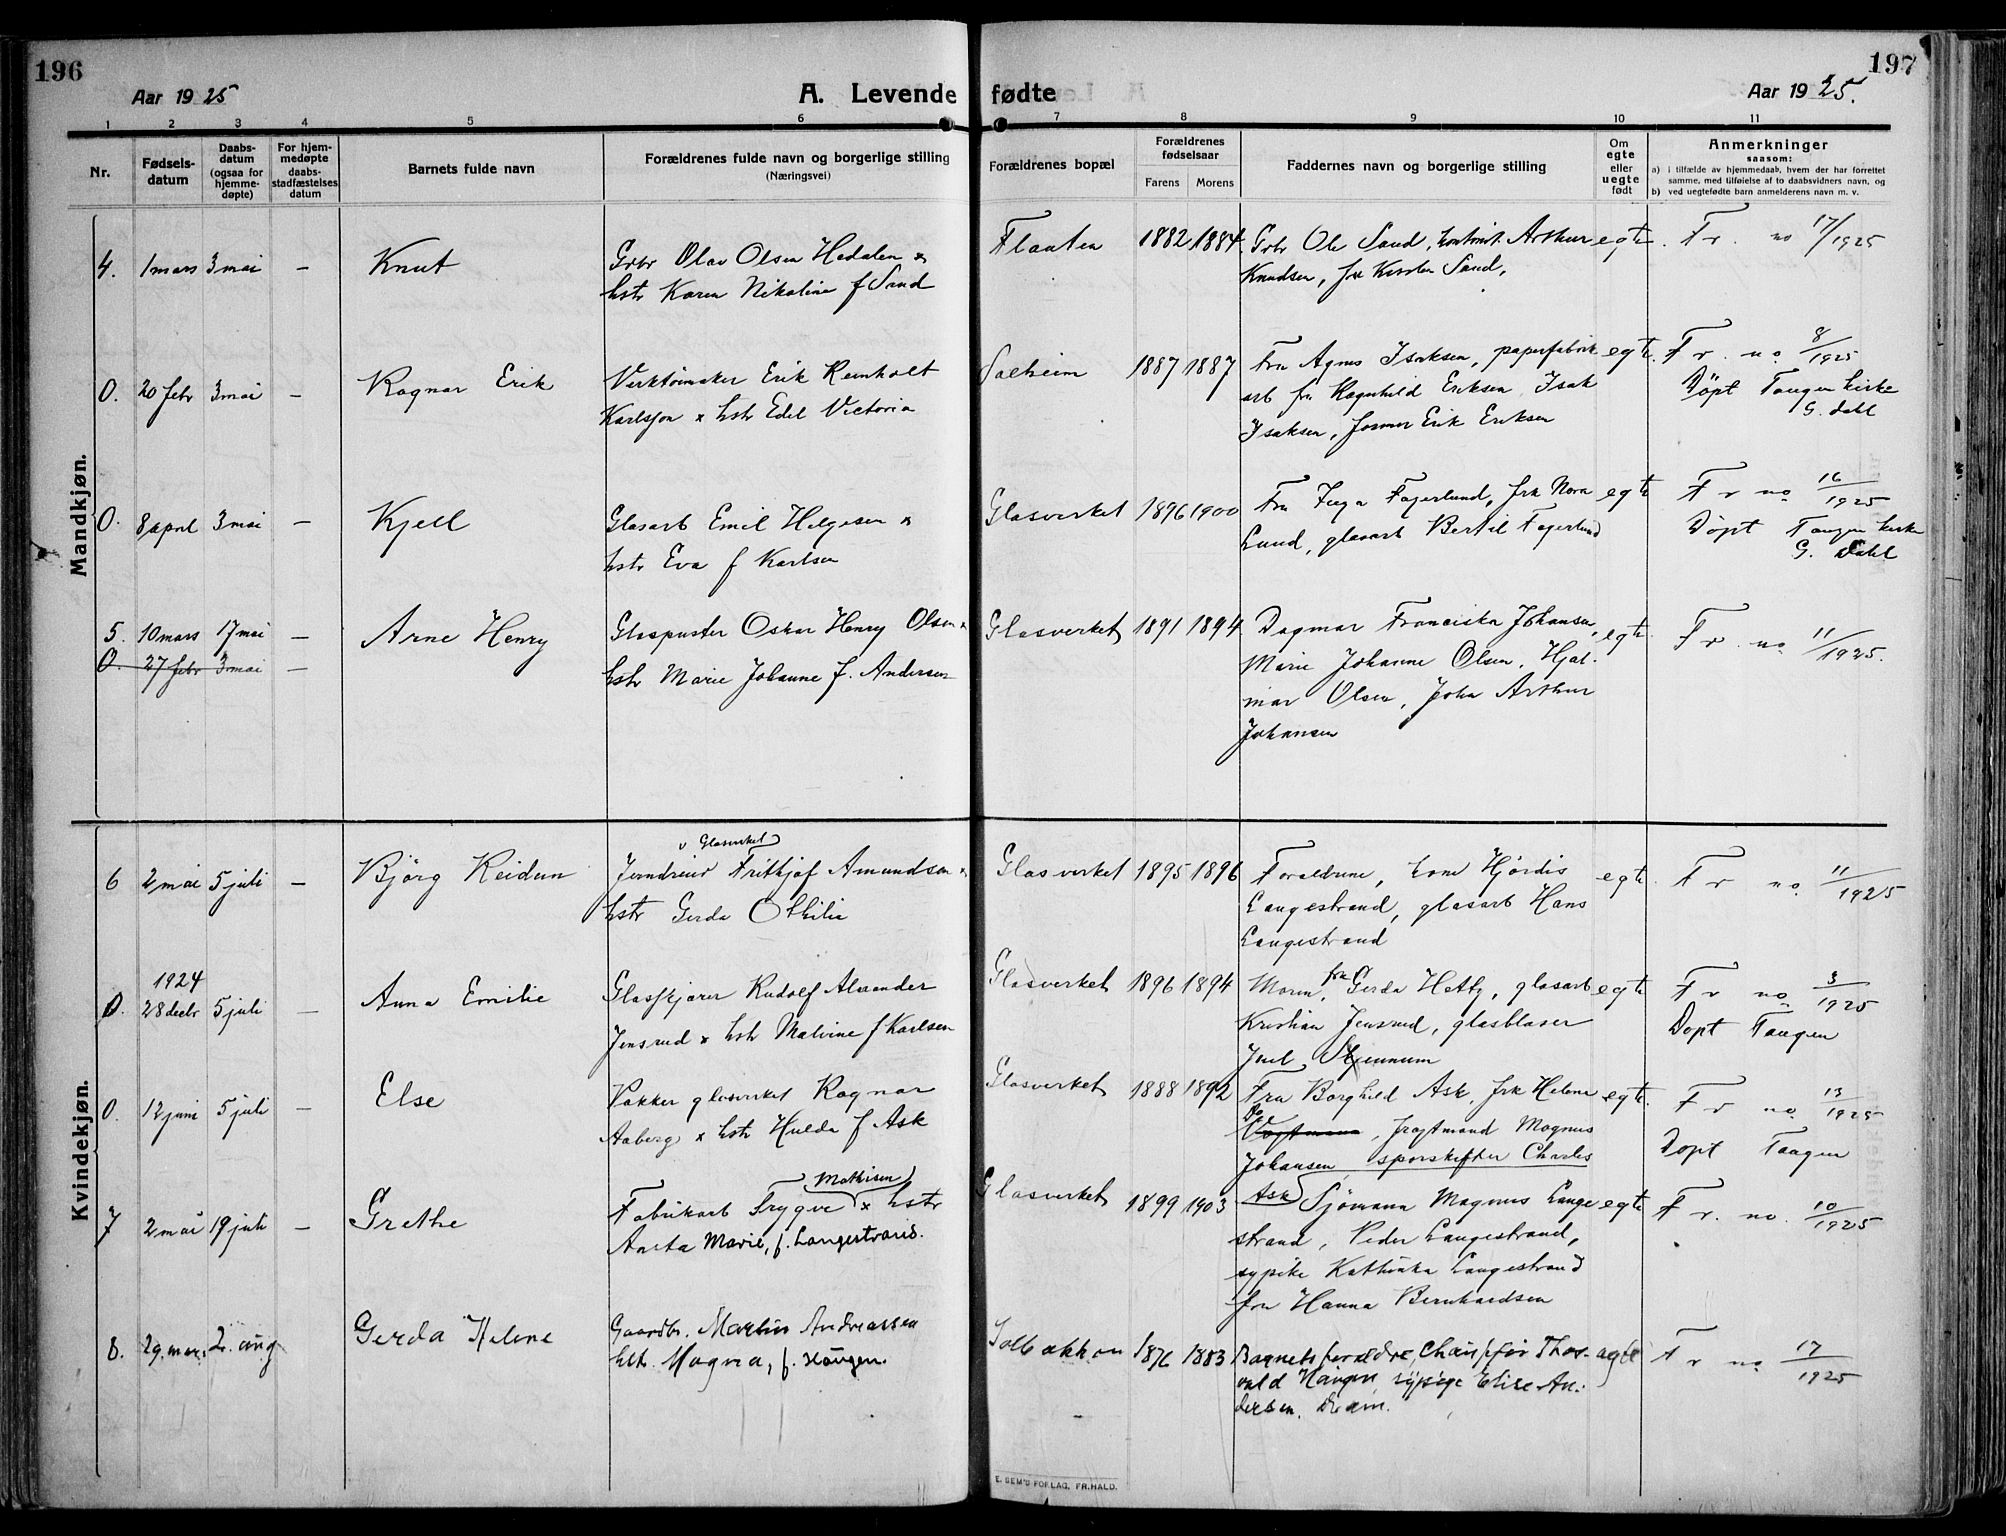 196
Aar 1925
A. Levende fødte
Aar 1925.
197
1 2 3 4 5 6 7 8 9 10 11
Nr.
Fødsels-
datum
Daabs-
datum
(ogsaa for
hjemme-
døpte)
For hjem-
medøpte
daabs-
stadfæstelses
datum
Barnets fulde navn
Forældrenes fulde navn og borgerlige stilling
(Næringsvei)
Forældrenes bopæl
Forældrenes
fødselsaar
Farens Morens
Faddernes navn og borgerlige stilling
Om
egte
eller
uegte
født
Anmerkninger
saasom:
a) i tilfælde av hjemmedaab, hvem der har forrettet
samme, med tilføielse av to daabsvidners navn, og
b) ved uegtefødte barn anmelderens navn m. v.
Mandkjøn.
4. 1 mars 3 mai — Knut
Gbr Olav Olsen Hedalen x
hstr Karen Nikoline f Sand
Flaaten 1882 1884
Gbr Ole Sand, Arthur
Knudsen, frk Sand.
egte. Fr. no 17/1925
0. 20 febr 3 mai — Ragnar Erik
Verktøimaker Erik Reinholt
Karlsson x hstr Edel Victoria
Solheim 1887 1887
Fru Agnes Isaksen, paperfabrik
arb fru Ragnhild Eriksen Isak
Isaksen, former Erik Eriksen
egte. Fr. no 8/1925
Döpt Tangen kirke
G. Dahl
0. 8 april 3 mai — Kjell
Glasarb Emil Helgesen x
hstr Eva f Karlsen
Glasverket 1896 1900
Fru Inga Fagerlund, frk Nora
Lund, glasarb Bertil Fagerlund
egte Fr no 16/1925
Döpt Tangen kirke
G. Dahl
5. 10 mars 17 mai — Arne Henry
0. 27 febr 3 mai —
Glaspuster Oskar Henry Olsen x
hstr Marie Johanne f. Andersen
Glasverket 1891 1894
Dagmar Franciska Johansen,
Marie Johanne Olsen, Hjal-
mar Olsen, John Arthur
Johansen
egte Fr. no 11/1925.
Kvindekjøn.
6 2 mai 5 juli — Bjørg Reidun
v Glasverket
Jerndreier Frithjof Amundsen x
hstr Gerda Othilie
Glasverket 1895 1896
Forældrene, Hjørdis
Langestrand, glasarb Hans
Langestrand
egte. Fr no. 11/1925
1924
0. 28 decbr 5 juli — Anna Emilie
Glasskjærer Rudolf Alexander
Jensrud x hstr Malvine f Karlsen
Glasverket 1896 1894
Moren, fru Gerda Hetty, glasarb
Kristian Jensrud, glasblaser
Juel Stjennum
egte Fr no 3/1925
Dopt Tangen
0. 12 juni 5 juli — Else
Pakker glasverket Ragnar
Aaberg x hstr Hulda f Ask
Glasverket 1888 1892
Fru Borghild Ask, frk Helene
Do
Vogtmann, fragtmand Magnus
Johansen, sporskifter Charles
Ask
egte. Fr no. 13/1925
Dopt Tangen
7 2 mai 19 juli — Grethe
Mathisen
Fabrikarb Trygve x hstr
Anita Marie, f. Langestrand.
Glasverket 1899 1903
Sjømann Magnus Lange
strand, Peder Langestrand,
sypike Kathinka Langestrand
fru Hanna Bernhardsen
egte Fr. no. 10/1925
8. 29. mai. 2. aug Gerda Helene
Gaardbr. Martin Andreassen
hstr. Magna, f. Haugen.
Solbakken 1876 1883
Barnets forældre, Chauffør Thor-
vald Haugen, sypige Elise An-
dersen. Dram.
egte Fr no 17/1925
E. SEM'S FORLAG, FR.HALD.